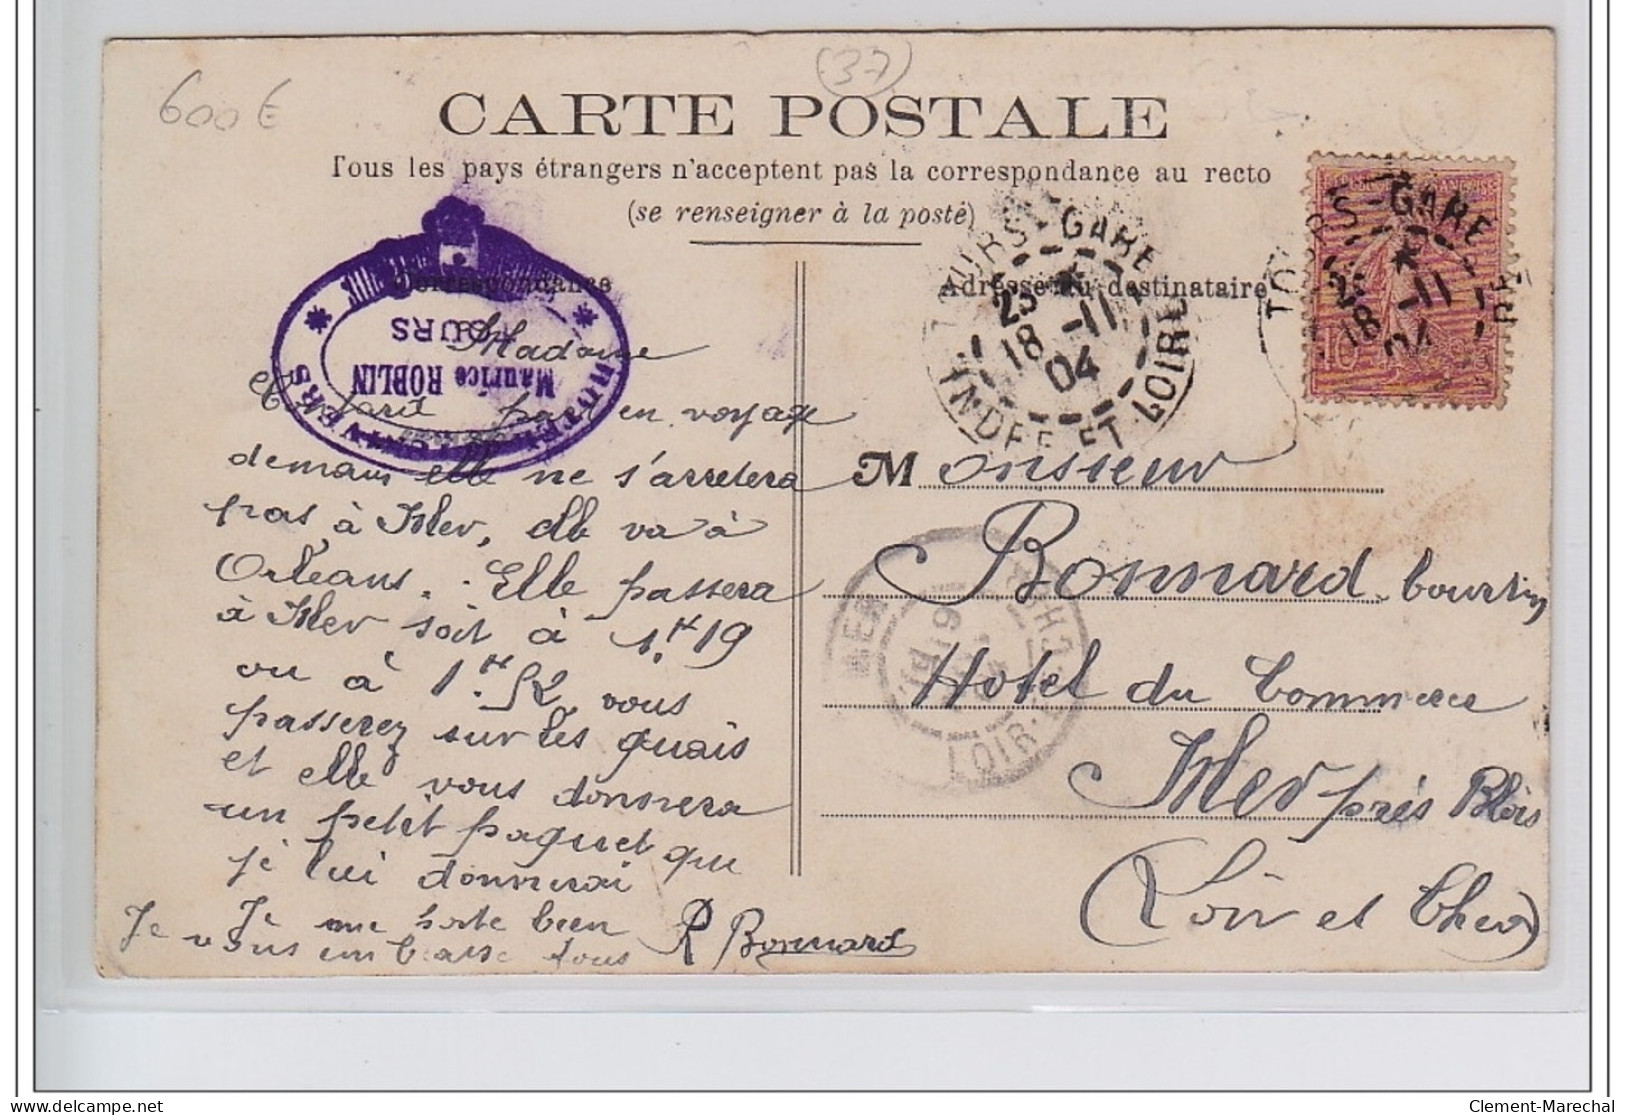 (37)
600€
CARTE POSTALE
Tous les pays étrangers n'acceptent pas la correspondance au recto
(se renseigner à la poste)
Correspondance
Adresse du destinataire
Maurice ROBLIN
TOURS
HOTEL UNIVERS
TOURS-GARE
23
18 -11
04
INDRE ET LOIRE
TOURS-GARE
18 -11
04
Madame
part par en voyage
demain elle ne s'arretera
pas à Mer, elle va à
Orléans. Elle passera
à Mer soit à 1.H 19
ou à 1.H 52 vous
passerez sur les quais
et elle vous donnera
un petit paquet que
je lui donnerai
Je me porte bien
Je vous embrasse tous
R Bonnard
Monsieur
Bonnard
Hotel du Commerce
Mer près Blois
(Loir et Cher)
MER
LOIR-
CHER
Clement-Marechal